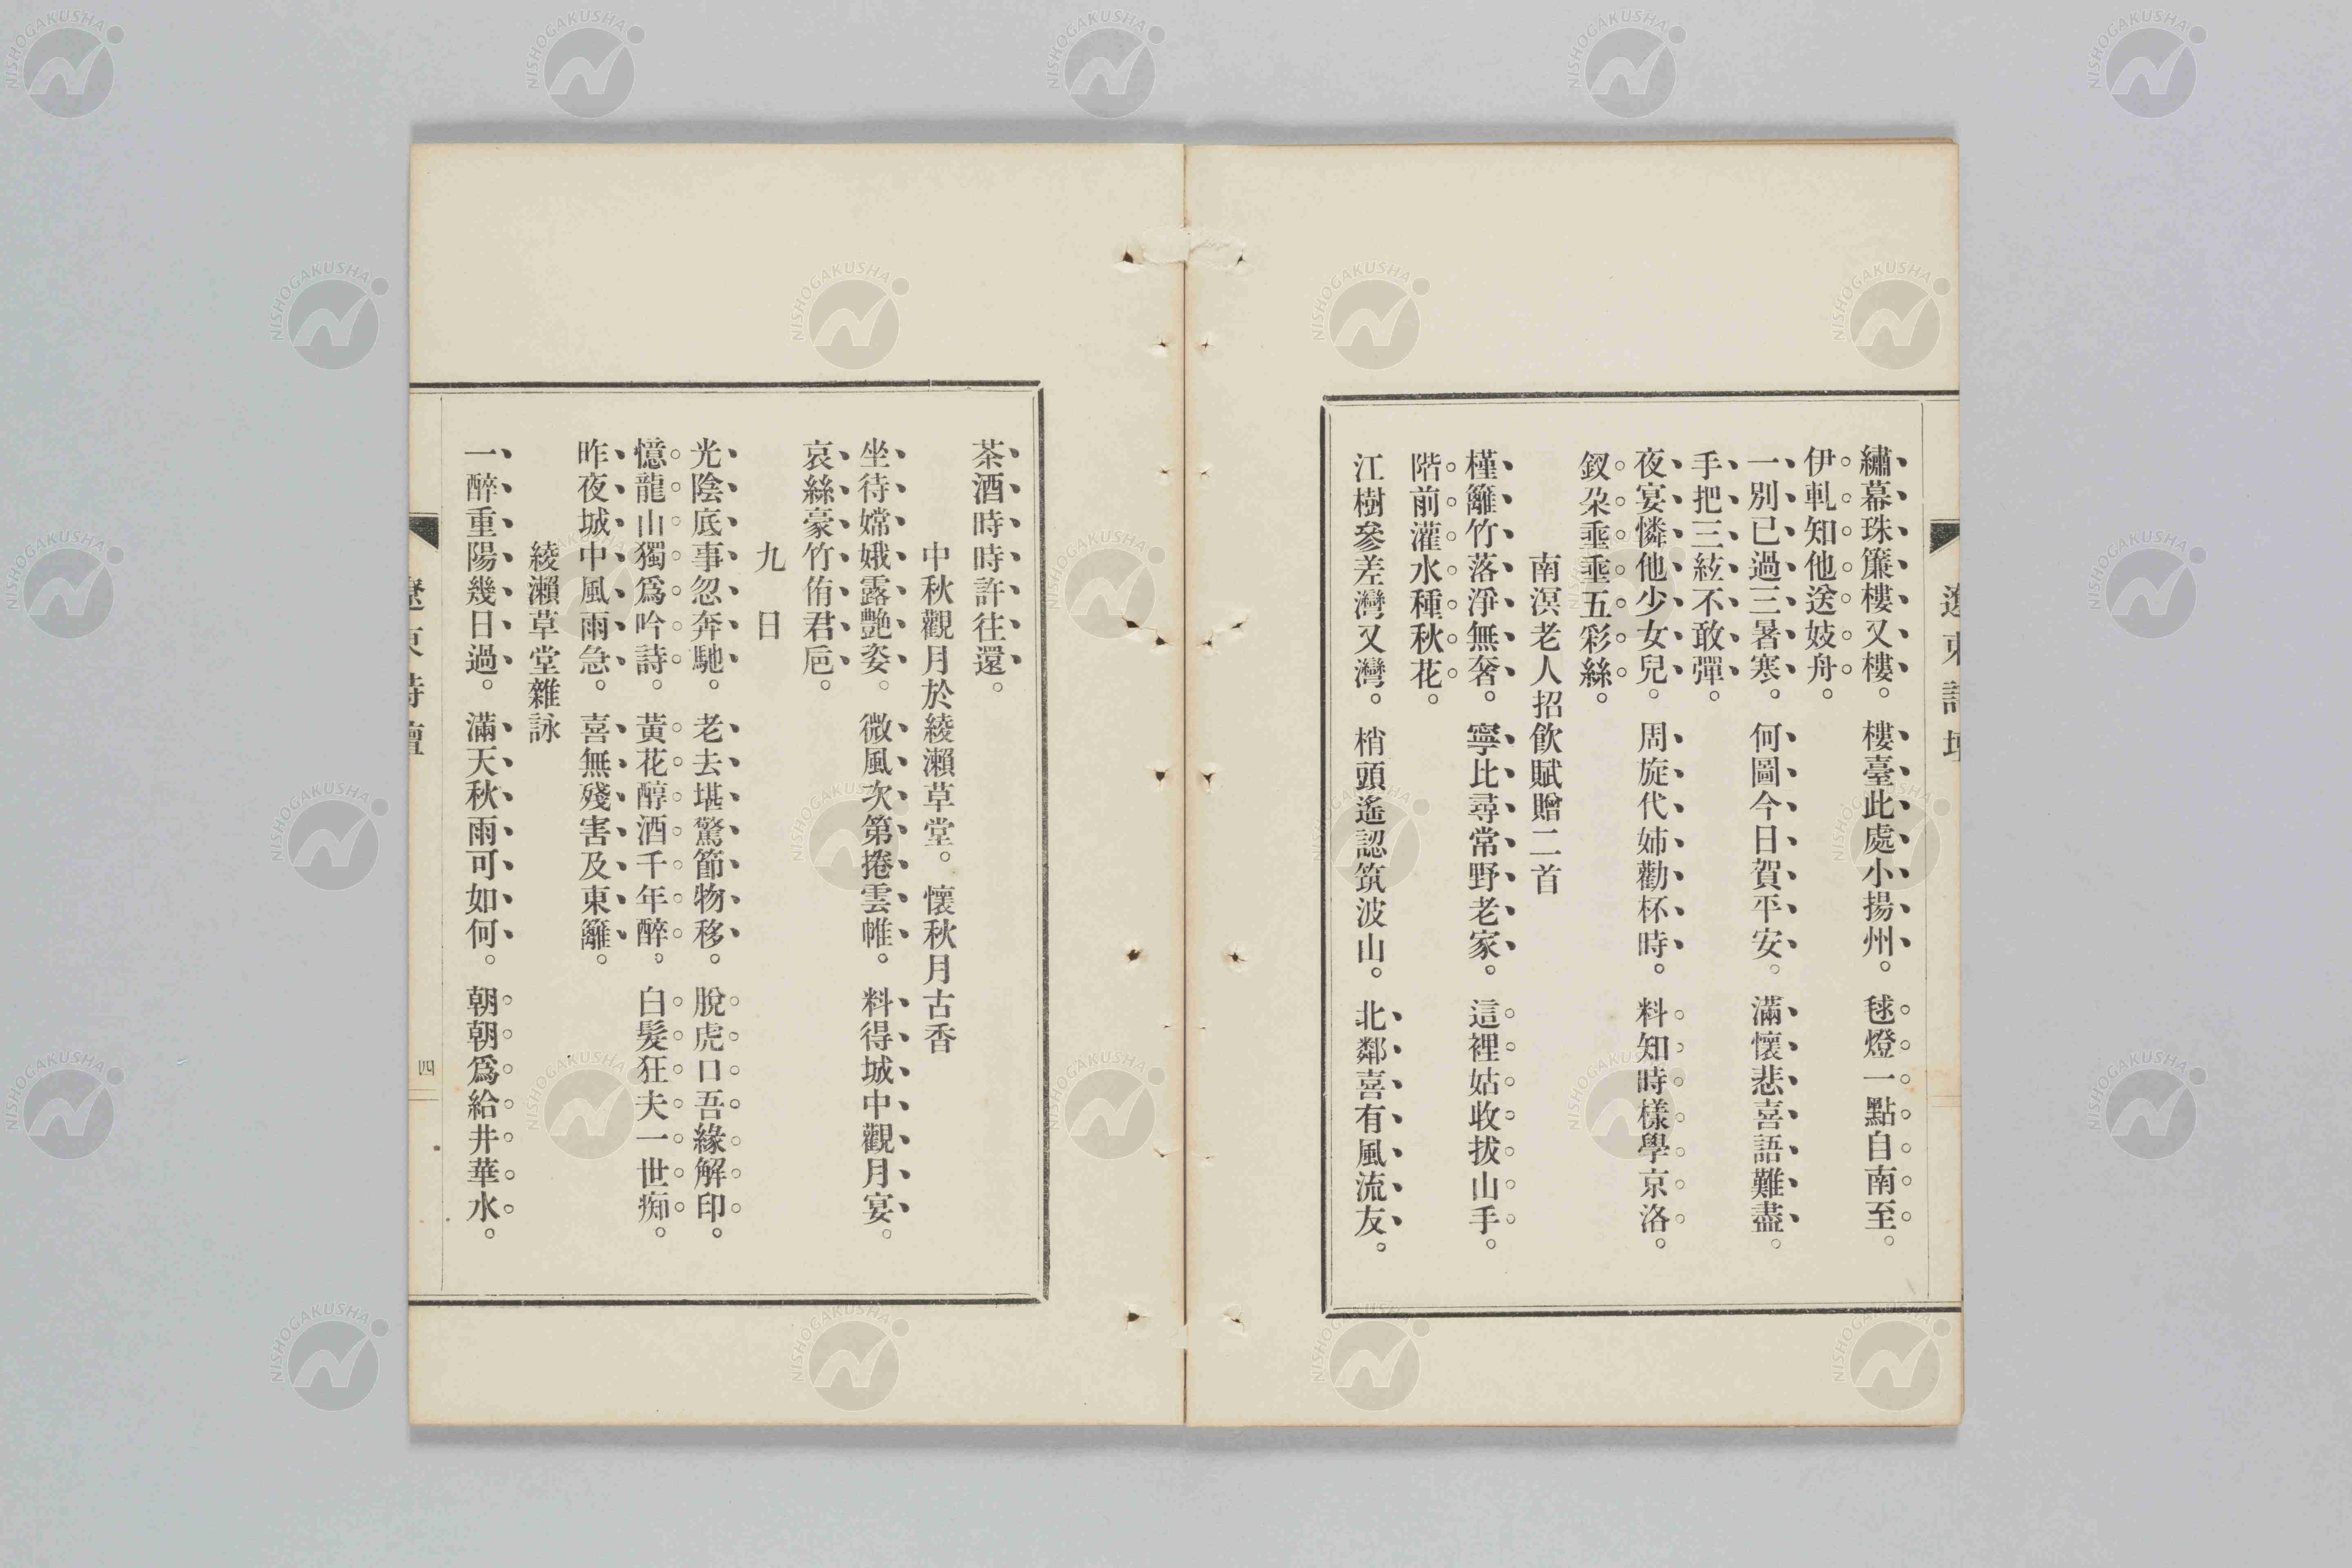 繡幕珠簾樓又樓。樓臺此處小揚州。毬燈一點自南至。
伊軋知他送妓舟。
一別已過三暑寒。何圖今日賀平安。滿懷悲喜語難盡。
手把三絃不敢彈。
夜宴憐他少女兒。周旋代姉勸杯時。料知時樣學京洛。
釵朶垂垂五彩絲。
南溟老人招飮賦贈二首
槿籬竹落淨無奢。寧比尋常野老家。這裡姑收拔山手。
階前灌水種秋花。
江樹參差灣又灣。梢頭遙認筑波山。北鄰喜有風流友。
茶酒時時許往還。
中秋觀月於綾瀨草堂。懷秋月古香
坐待嫦娥露艷姿。微風次第捲雲帷。料得城中觀月宴。
哀絲豪竹侑君巵。
九日
光陰底事忽奔馳。老去堪驚節物移。脫虎口吾緣解印。
憶龍山獨爲吟詩。黃花醇酒千年醉。白髮狂夫一世痴。
昨夜城中風雨急。喜無殘害及東籬。
綾瀨草堂雜詠
一醉重陽幾日過。滿天秋雨可如何。朝朝爲給井華水。
四
NISHOGAKUSHA